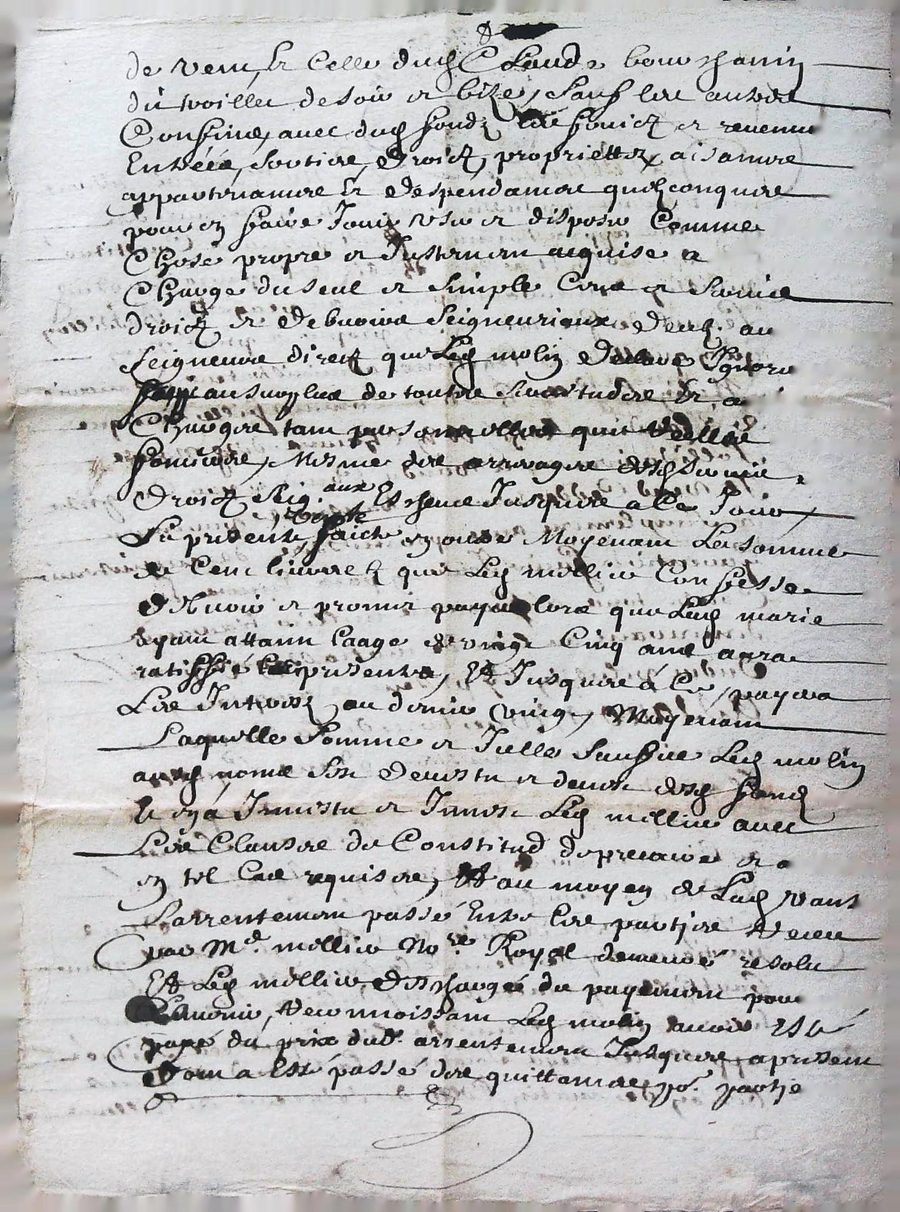 de vent, et celle dud Claude bouschanin
du traille de soir et bize, sauf les autres
Confins, avec dud fondz ses fonictz et revenu
Entrées, sorties, droictz, proprietes, aisances
appartenances et despendances quelzconques
pour en faire Jouir user et disposer Comme
Chose propre et Justement acquise a
Charge du seul et simple Cens et servis
droictz et debvoirs seigneuriaux deubz au
seigneurs directz que led molin declare Ignorer
au surplus de toutes servitudes et a
Charges tant que
mesme des arrerages desd servis
droictz seig.aux Escheuz Jusques a Ce Jour
La presente faicte en outre Moyenant La somme
de Cent livres que led mellier Confesse
debvoir et promis payer lors que lad marie
ayant attaint Laage de vingt Cinq ans aura
ratiffié les presentes, Et Jusques á Ce, payera
Les Interestz au denier vingt, Moyenant
Laquelle somme et Icelle sauffve Led molin
aud nom s'est devestu et devest dud fondz
et en á Investu et Invest Led mellier avec
Les Clauses de Constitud de precaire et a
en tel Cas requises, Et au moyen de Lad vante
Larrentement passé Entre les parties receu
par M.e mellier No.re Royal demeure resolu
Et Led mellier deschargée du payement pour
Ladvenir, reconnoissant Led molin avoir Esté
payé du prix dud. arrentement Jusques a present
dont a Esté passé des quittances po.r partie